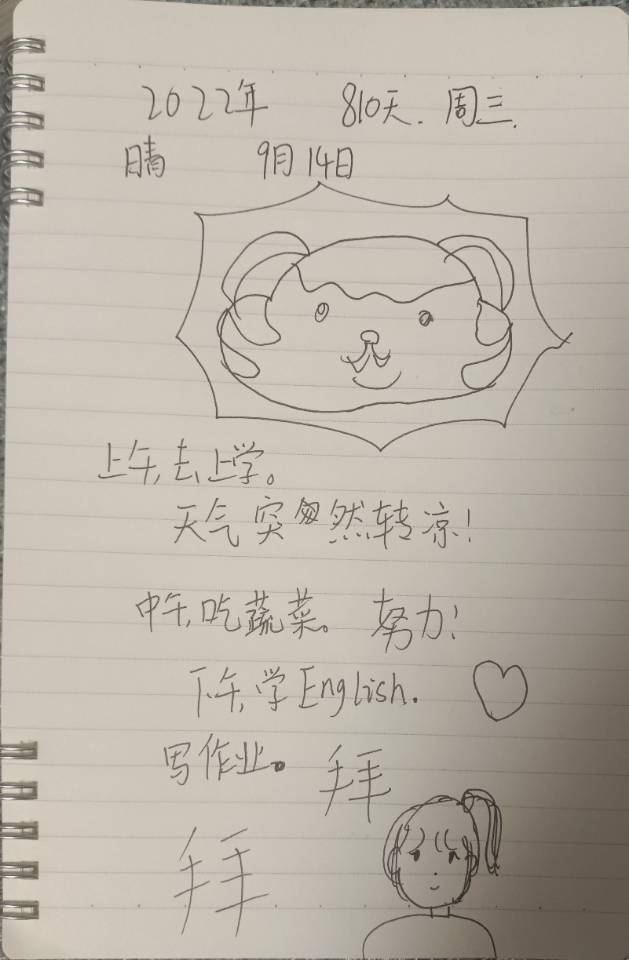 2022年 810天. 周三.
晴 9月14日
上午,去上学。
天气突然转凉!
中午,吃蔬菜。 努力!
下午,学English.
写作业。 拜
拜